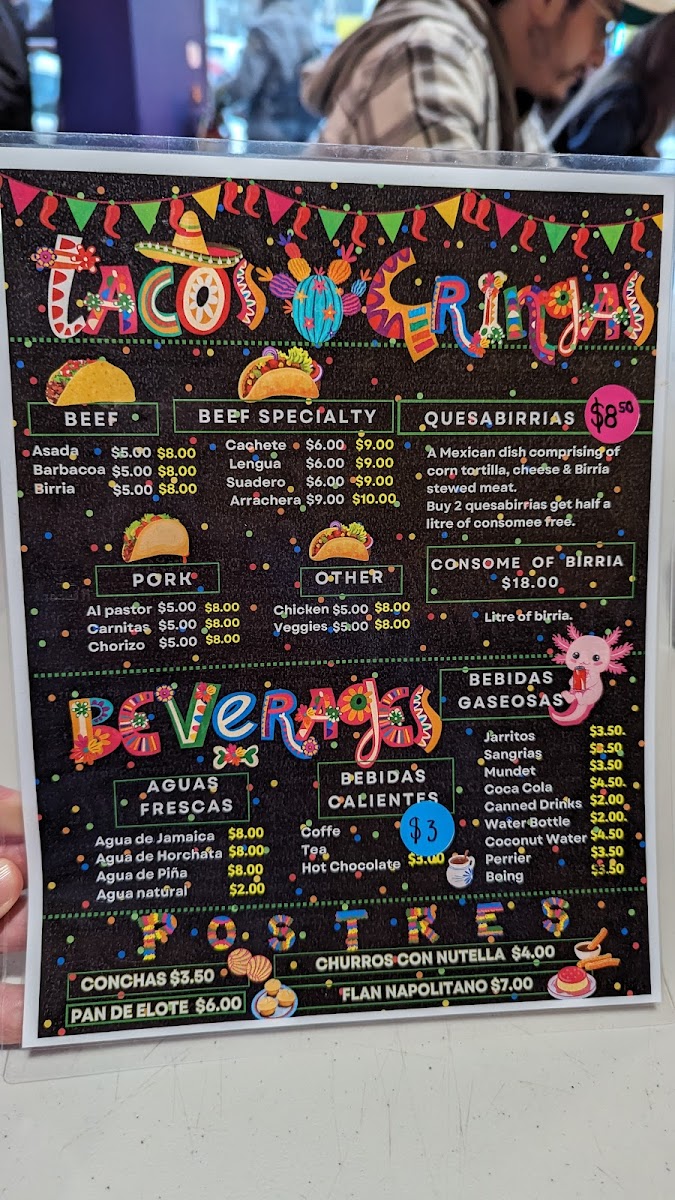 TACOS Y GRINGAS
BEEF
Asada $5.00 $8.00
Barbacoa $5.00 $8.00
Birria $5.00 $8.00
BEEF SPECIALTY
Cachete $6.00 $9.00
Lengua $6.00 $9.00
Suadero $6.00 $9.00
Arrachera $9.00 $10.00
QUESABIRRIAS $8.50
A Mexican dish comprising of
corn tortilla, cheese & Birria
stewed meat.
Buy 2 quesabirrias get half a
litre of consomee free.
CONSOME OF BIRRIA
$18.00
Litre of birria.
PORK
Al pastor $5.00 $8.00
Carnitas $5.00 $8.00
Chorizo $5.00 $8.00
OTHER
Chicken $5.00 $8.00
Veggies $5.00 $8.00
BEVERAGES
AGUAS
FRESCAS
Agua de Jamaica $8.00
Agua de Horchata $8.00
Agua de Piña $8.00
Agua natural $2.00
BEBIDAS
CALIENTES
$3
Coffe
Tea
Hot Chocolate $3.00
BEBIDAS
GASEOSAS
Jarritos $3.50
Sangrias $3.50
Mundet $3.50
Coca Cola $4.50
Canned Drinks $2.00
Water Bottle $2.00
Coconut Water $4.50
Perrier $3.50
Boing $3.50
POSTRES
CONCHAS $3.50
PAN DE ELOTE $6.00
CHURROS CON NUTELLA $4.00
FLAN NAPOLITANO $7.00